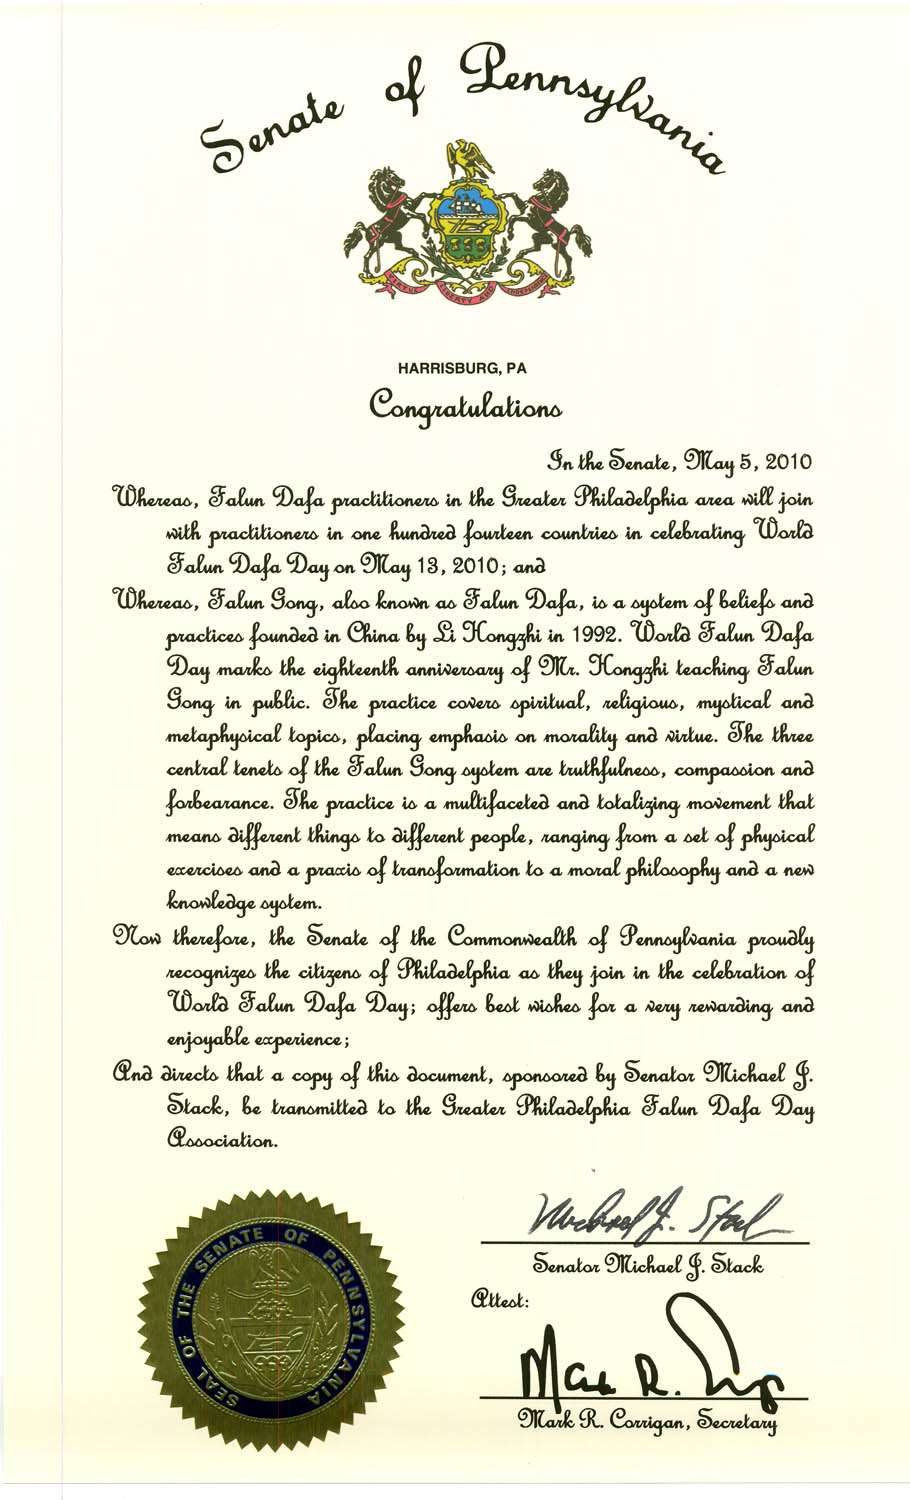 Senate of Pennsylvania
VIRTUE LIBERTY AND INDEPENDENCE
HARRISBURG, PA
Congratulations
In the Senate, May 5, 2010
Whereas, Falun Dafa practitioners in the Greater Philadelphia area will join
with practitioners in one hundred fourteen countries in celebrating World
Falun Dafa Day on May 13, 2010; and
Whereas, Falun Gong, also known as Falun Dafa, is a system of beliefs and
practices founded in China by Li Hongzhi in 1992. World Falun Dafa
Day marks the eighteenth anniversary of Mr. Hongzhi teaching Falun
Gong in public. The practice covers spiritual, religious, mystical and
metaphysical topics, placing emphasis on morality and virtue. The three
central tenets of the Falun Gong system are truthfulness, compassion and
forbearance. The practice is a multifaceted and totalizing movement that
means different things to different people, ranging from a set of physical
exercises and a praxis of transformation to a moral philosophy and a new
knowledge system.
Now therefore, the Senate of the Commonwealth of Pennsylvania proudly
recognizes the citizens of Philadelphia as they join in the celebration of
World Falun Dafa Day; offers best wishes for a very rewarding and
enjoyable experience;
And directs that a copy of this document, sponsored by Senator Michael J.
Stack, be transmitted to the Greater Philadelphia Falun Dafa Day
Association.
Michael J. Stack
Senator Michael J. Stack
Attest:
Mark R.
Mark R. Corrigan, Secretary
SEAL OF THE SENATE OF PENNSYLVANIA